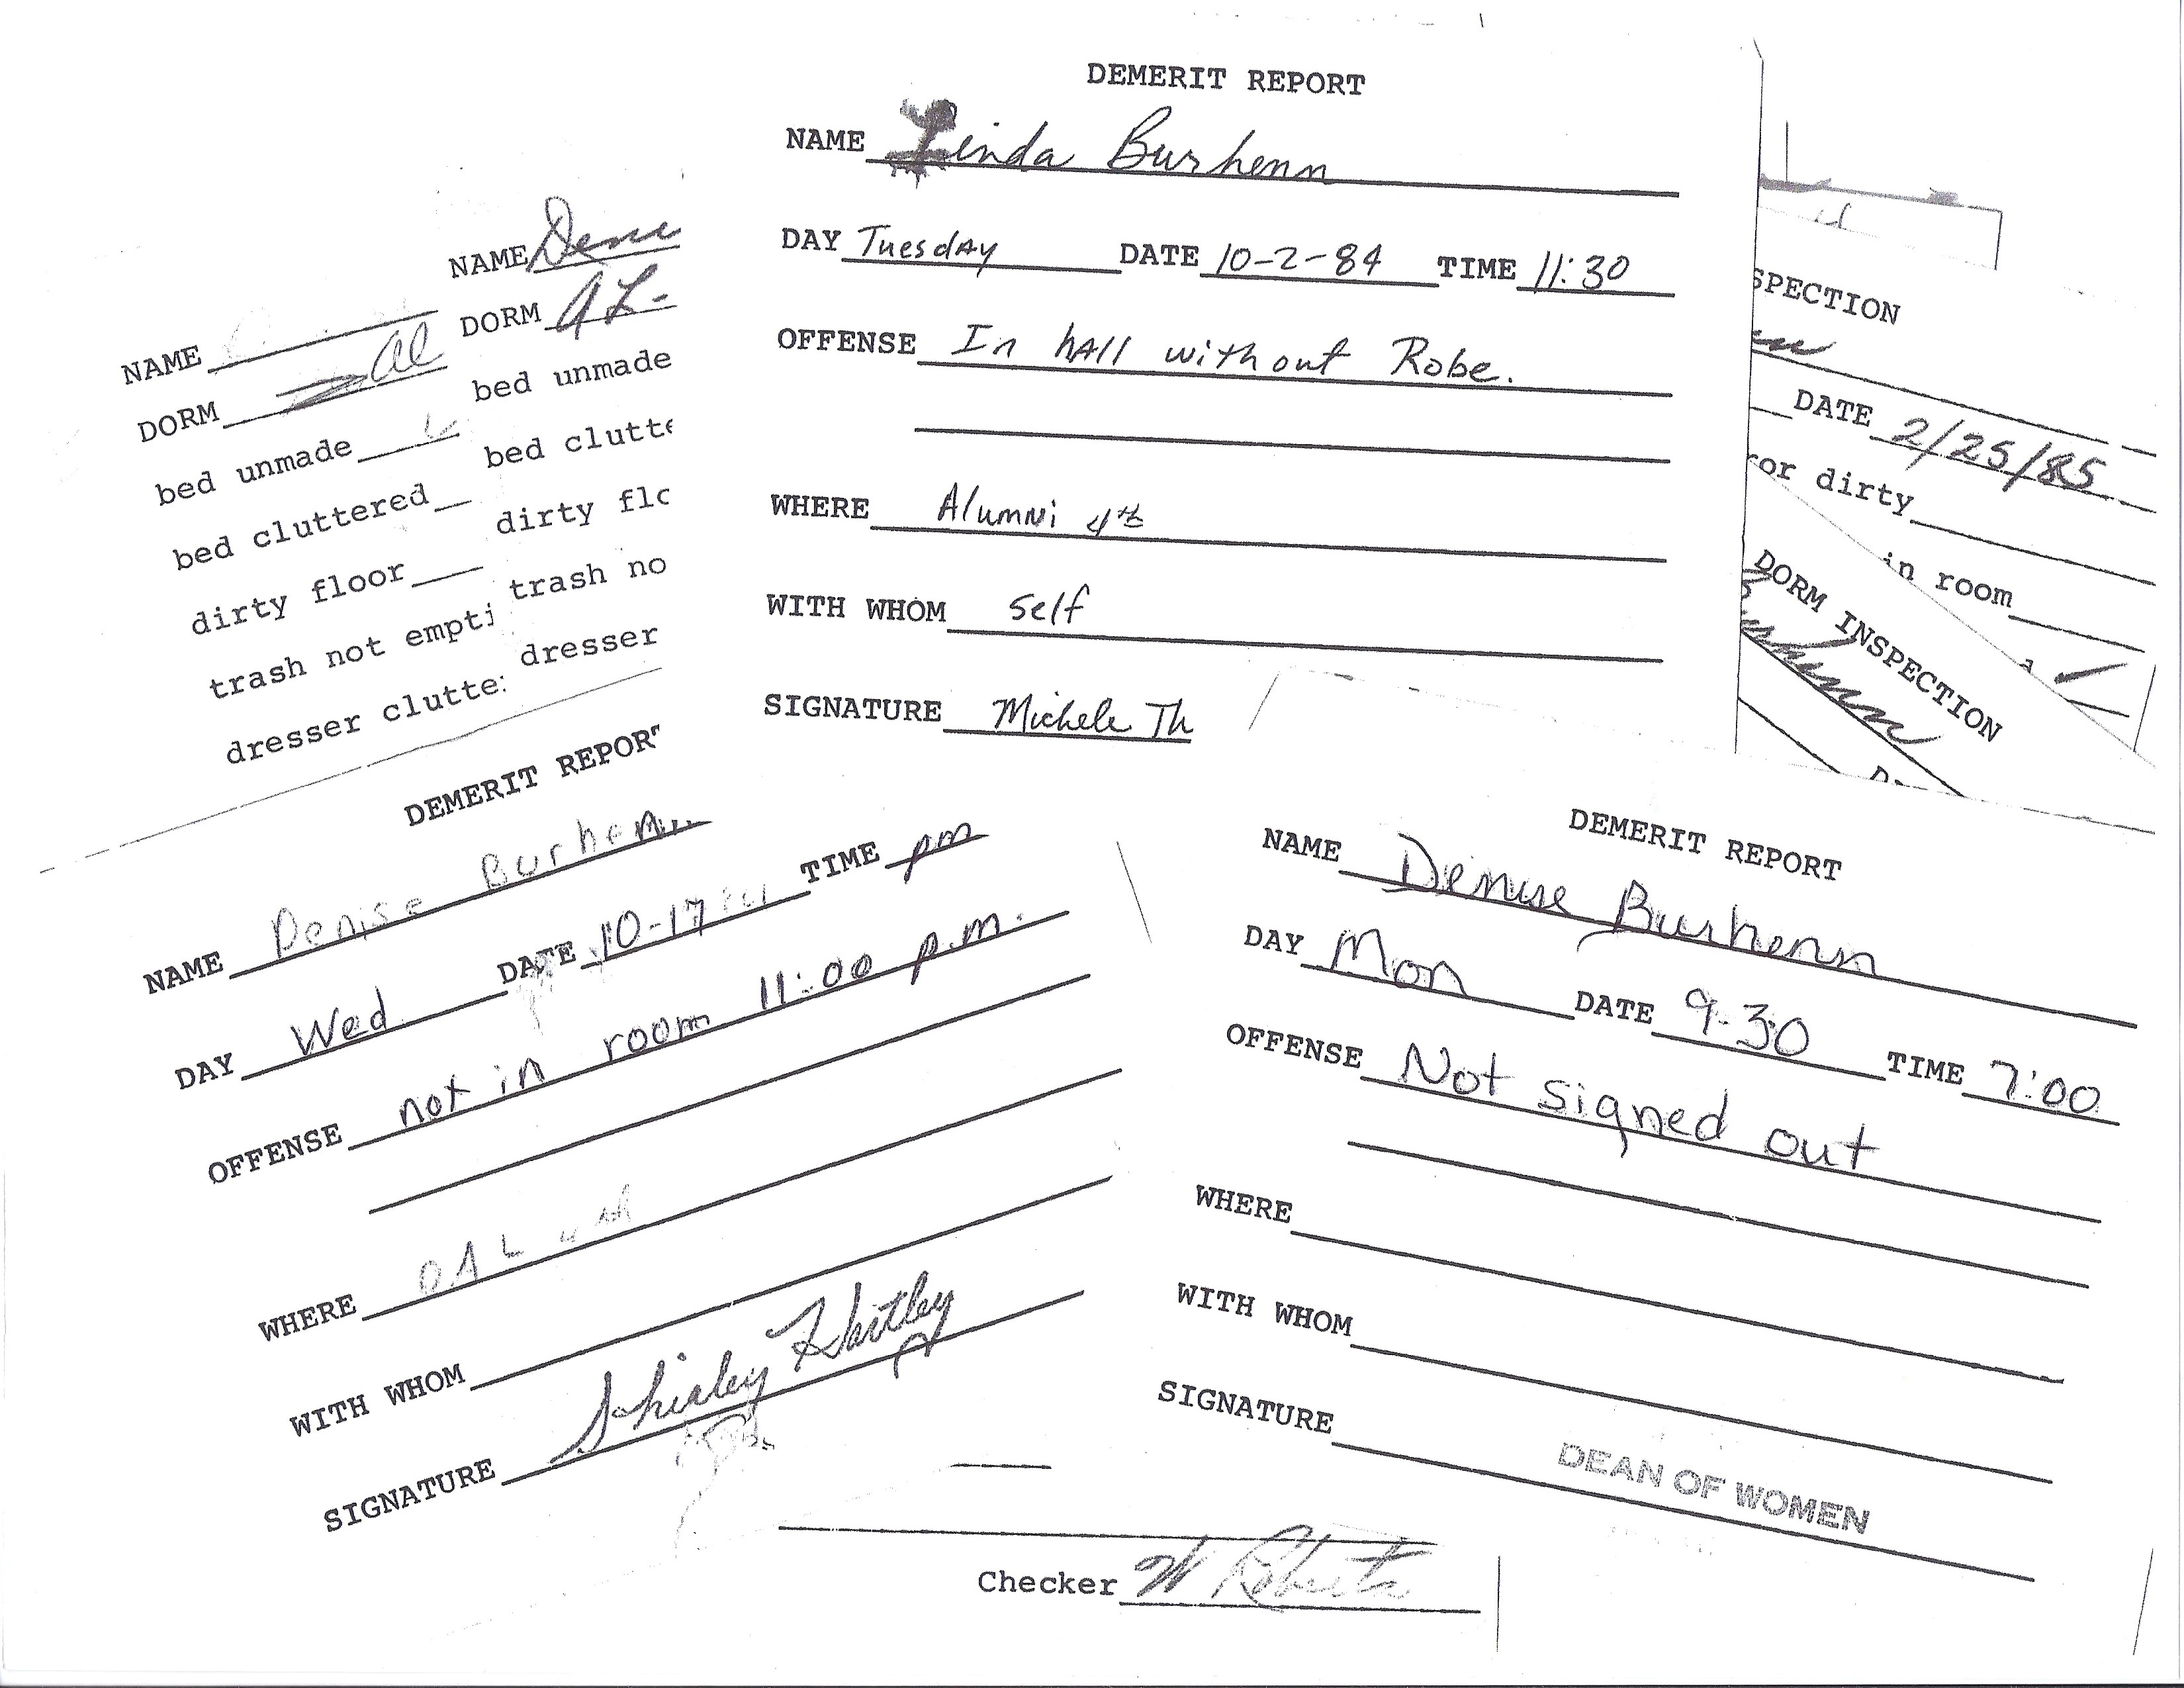 DEMERIT REPORT
NAME Linda Burhenn
DAY Tuesday DATE 10-2-84 TIME 11:30
OFFENSE In hall without Robe.
WHERE Alumni 4th
WITH WHOM self
SIGNATURE Michele Th
NAME
DORM al
bed unmade
bed cluttered
dirty floor
trash not empti
dresser clutte
NAME Deni
DORM AL-
bed unmade
bed clutte
dirty flo
trash no
dresser
SPECTION
DATE 2/25/85
or dirty
in room
DORM INSPECTION
DEMERIT REPOR
NAME Denise Burhenn
DAY Wed DATE 10-17 TIME pm
OFFENSE not in room 11:00 p.m.
WHERE OAL
WITH WHOM
SIGNATURE Shirley Hartley
DEMERIT REPORT
NAME Denise Burhenn
DAY Mon DATE 9-30 TIME 7:00
OFFENSE Not signed out
WHERE
WITH WHOM
SIGNATURE
DEAN OF WOMEN
Checker W Roberts